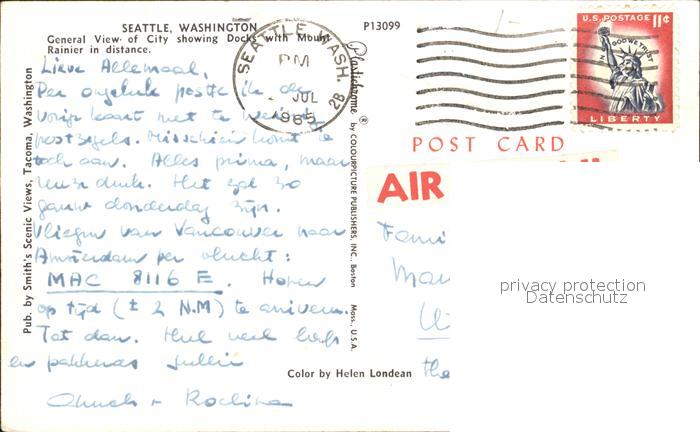 SEATTLE, WASHINGTON
General View of City showing Docks with Mount
Rainier in distance.
P13099
SEATTLE WASH.
PM
JUL
1965
2B
U.S. POSTAGE 11¢
IN GOD WE TRUST
LIBERTY
POST CARD
AIR
Lieve Allemaal,
Per ongeluk postte ik de
vorige kaart met te weinig
postzegels. Misschien komt ie
toch aan. Alles prima, maar
druk. Het zal zo
gauw donderdag zijn.
Vliegen van Vancouver naar
Amsterdam per vlucht:
MAC 8116 E. Hopen
op tijd (± 2 N.M) te arriveren.
Tot dan. Heel veel liefs
en pakkerds jullie
Chuck +
Fami
Mau
the
Pub. by Smith's Scenic Views, Tacoma, Washington
Plastichrome ® by COLOURPICTURE PUBLISHERS, INC., Boston Mass., U.S.A.
Color by Helen Londean
privacy protection
Datenschutz